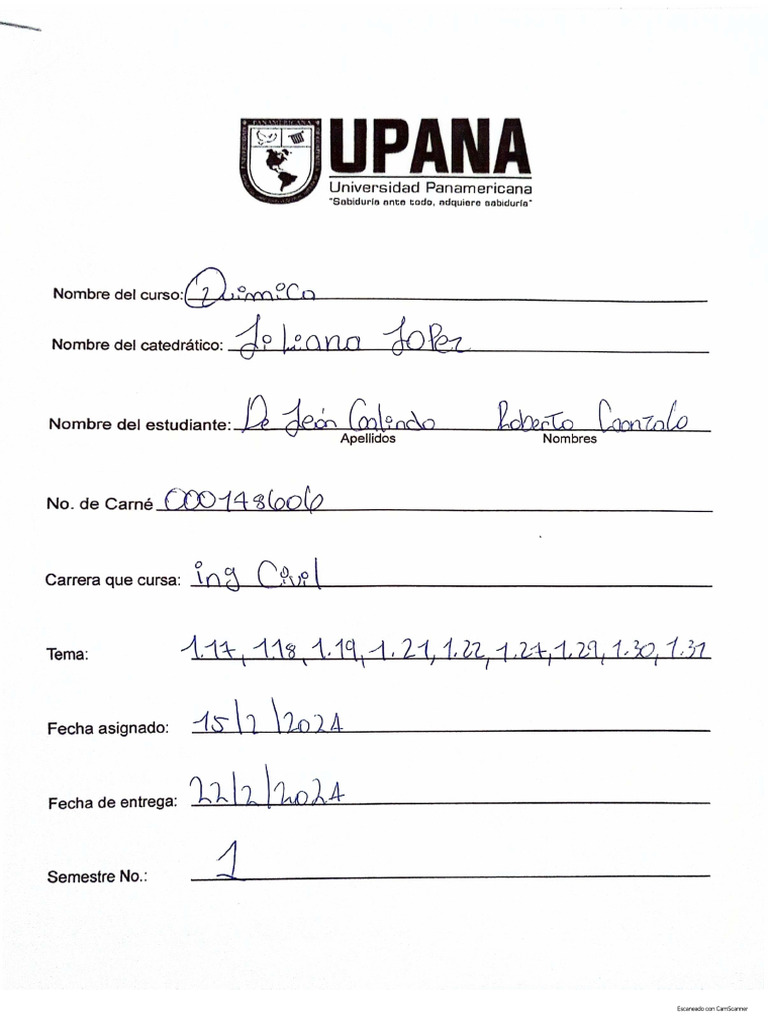 PANAMERICANA
UPANA
Universidad Panamericana
"Sabiduría ante todo, adquiere sabiduría"
Nombre del curso: Quimica
Nombre del catedrático: Liliana Lopez
Nombre del estudiante: De León Galindo Roberto Gonzalo
Apellidos Nombres
No. de Carné 000148606
Carrera que cursa: ing Civil
Tema: 1.17, 1.18, 1.19, 1.21, 1.22, 1.27, 1.29, 1.30, 1.31
Fecha asignado: 15/2/2024
Fecha de entrega: 22/2/2024
Semestre No.: 1
Escaneado con CamScanner